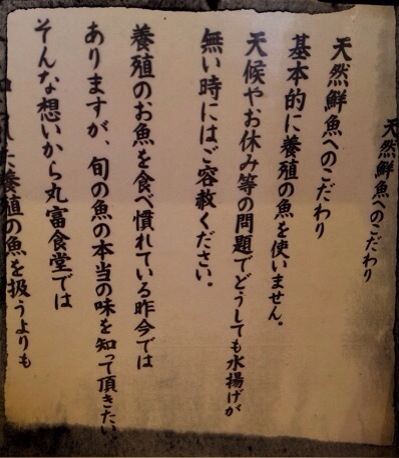 天然鮮魚へのこだわり
天然鮮魚へのこだわり
基本的に養殖の魚を使いません。
天候やお休み等の問題でどうしても水揚げが
無い時にはご容赦ください。
養殖のお魚を食べ慣れている昨今では
ありますが、旬の魚の本当の味を知って頂きたい、
そんな想いから丸富食堂では
た養殖の魚を扱うよりも